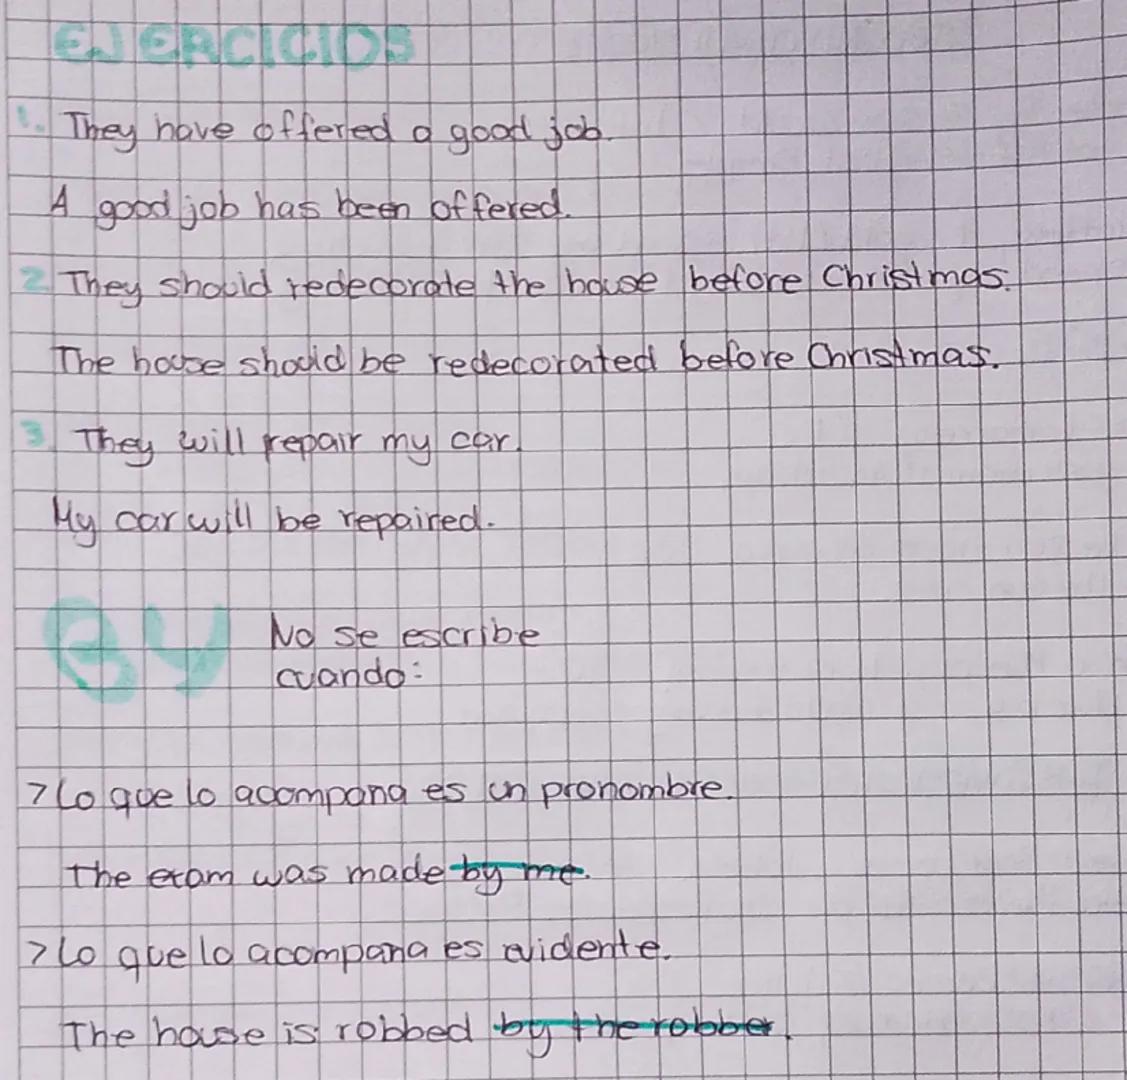 EJERCICIOS
1. They have offered a good job.
A good job has been offered.
2 They should redecorate the house before Christmas.
The house should be redecorated before Christmas.
3. They will repair my car.
My car will be repaired.
BY
No se escribe
cuando:
> Lo que lo acompaña es un pronombre.
the exam was made by me.
> Lo que lo acompaña es evidente.
The house is robbed by the robber.